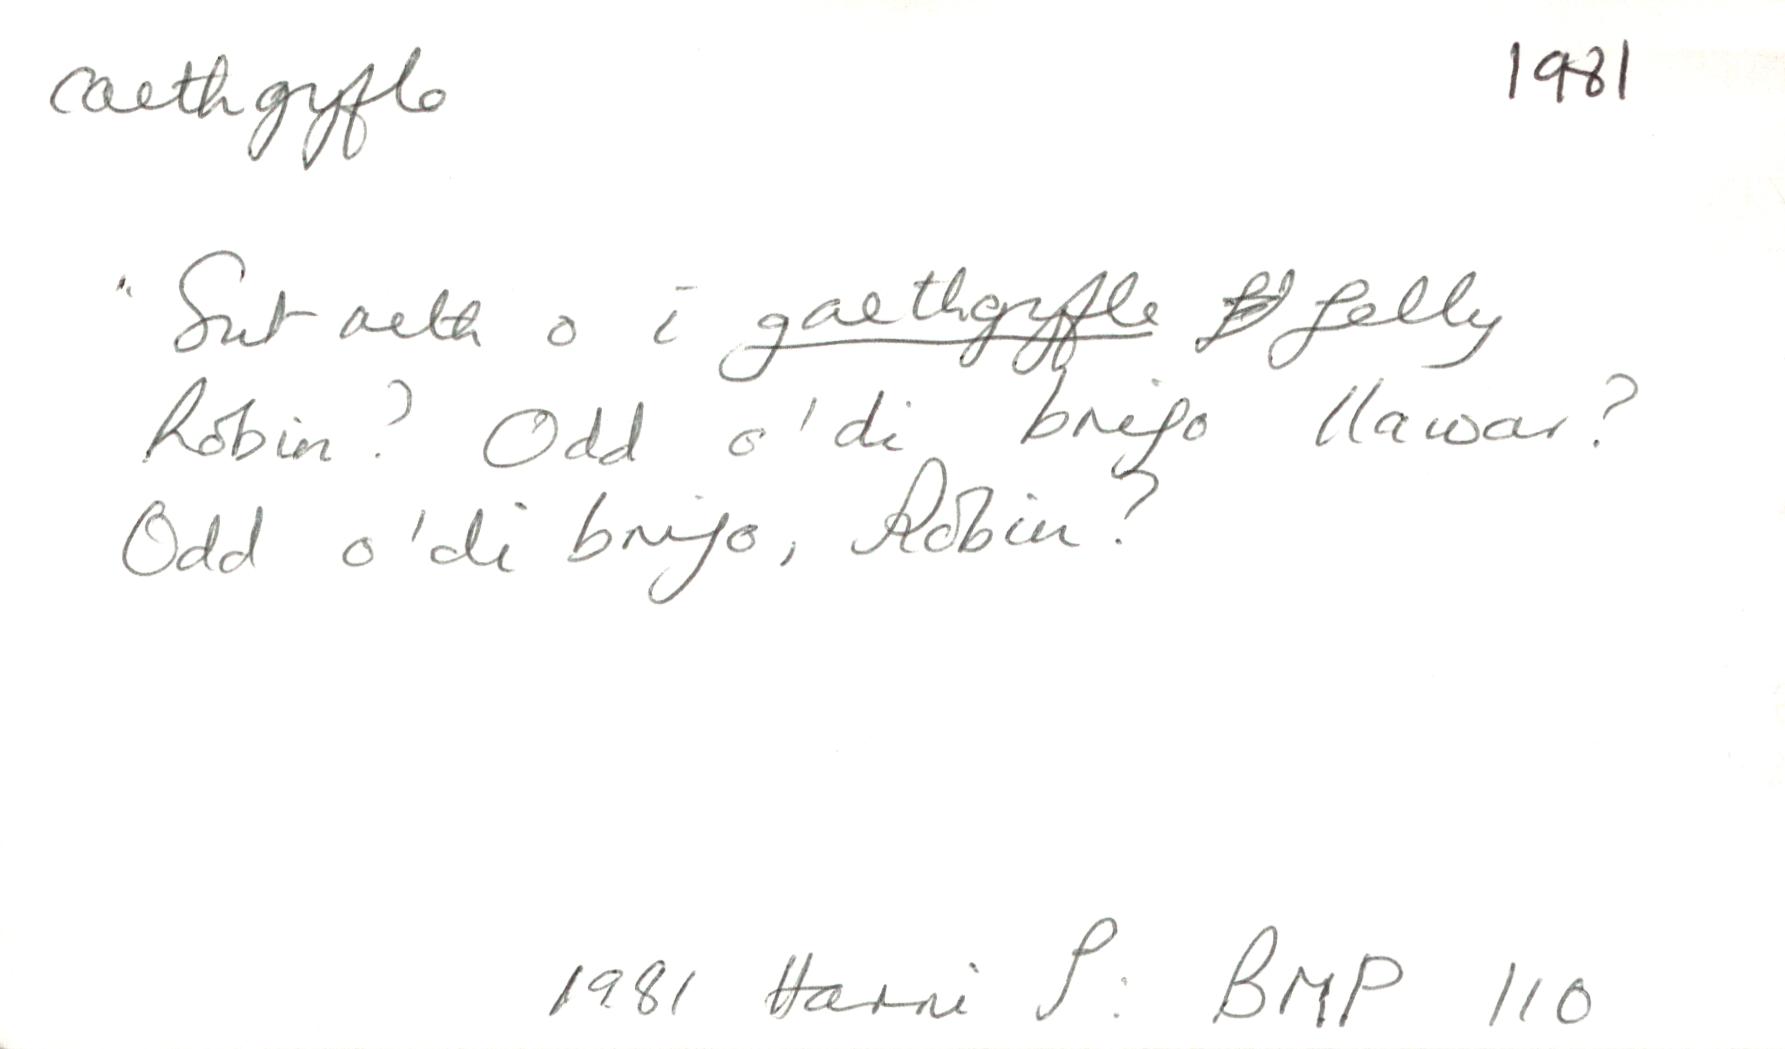 caethgyfle
1981
"Sut aeth o i gaethgyfle felly
Robin? Odd o'di brifo llawar?
Odd o'di brifo, Robin?
1981 Harri P: BMP 110